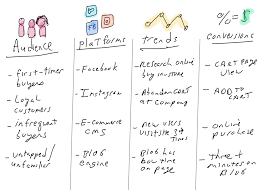 % = $
Audience
- first-timer buyers
- Loyal customers
- infrequent buyers
- untapped/ unfamiliar
Platforms
- Facebook
- Instagram
- E-commerce CMS
- Blog engine
trends
- Research online buy in store
- Abandon cart at
- new users visit site 3+ times
- Blog has time on page
conversions
- CART PAGE View
- ADD TO CART
- online purchase
- three + minutes on Blog